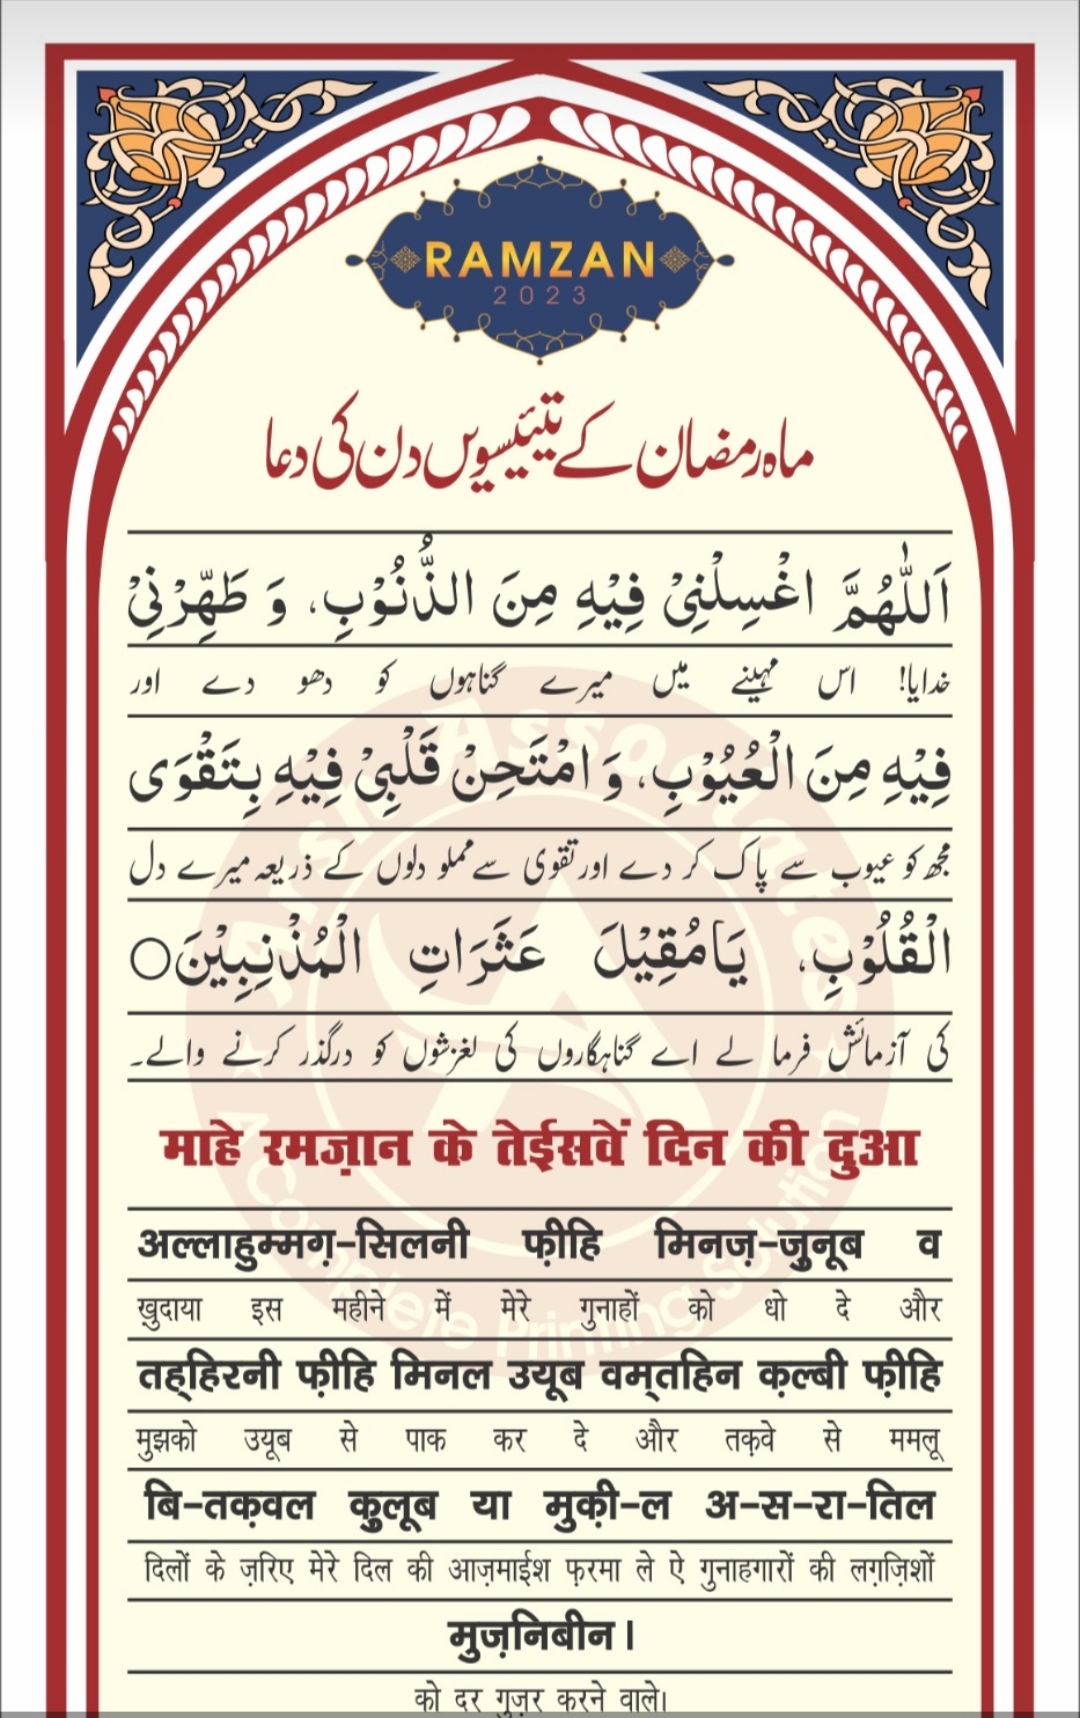 RAMZAN
2023
ماہ رمضان کے تیئیسویں دن کی دعا
اَللّٰهُمَّ اغْسِلْنِیْ فِیْهِ مِنَ الذُّنُوْبِ، وَ طَهِّرْنِیْ
خدایا! اس مہینے میں میرے گناہوں کو دھو دے اور
فِیْهِ مِنَ الْعُیُوْبِ، وَ امْتَحِنْ قَلْبِیْ فِیْهِ بِتَقْوَی
مجھ کو عیوب سے پاک کر دے اور تقوی سے مملو دلوں کے ذریعہ میرے دل
الْقُلُوْبِ، یَامُقِیْلَ عَثَرَاتِ الْمُذْنِبِیْنَ○
کی آزمائش فرما لے اے گناہگاروں کی لغزشوں کو درگذر کرنے والے۔
माहे रमज़ान के तेईसवें दिन की दुआ
अल्लाहुम्मग़-सिलनी फ़ीहि मिनज़-ज़ुनूब व
ख़ुदाया इस महीने में मेरे गुनाहों को धो दे और
तह्हिरनी फ़ीहि मिनल उयूब वम्तहिन क़ल्बी फ़ीहि
मुझको उयूब से पाक कर दे और तक़वे से ममलू
बि-तक़वल क़ुलूब या मुक़ी-ल अ-स-रा-तिल
दिलों के ज़रिए मेरे दिल की आज़माईश फ़रमा ले ऐ गुनाहगारों की लग़ज़िशों
मुज़निबीन।
को दर गुज़र करने वाले।
Associates
A Complete Printing Solution